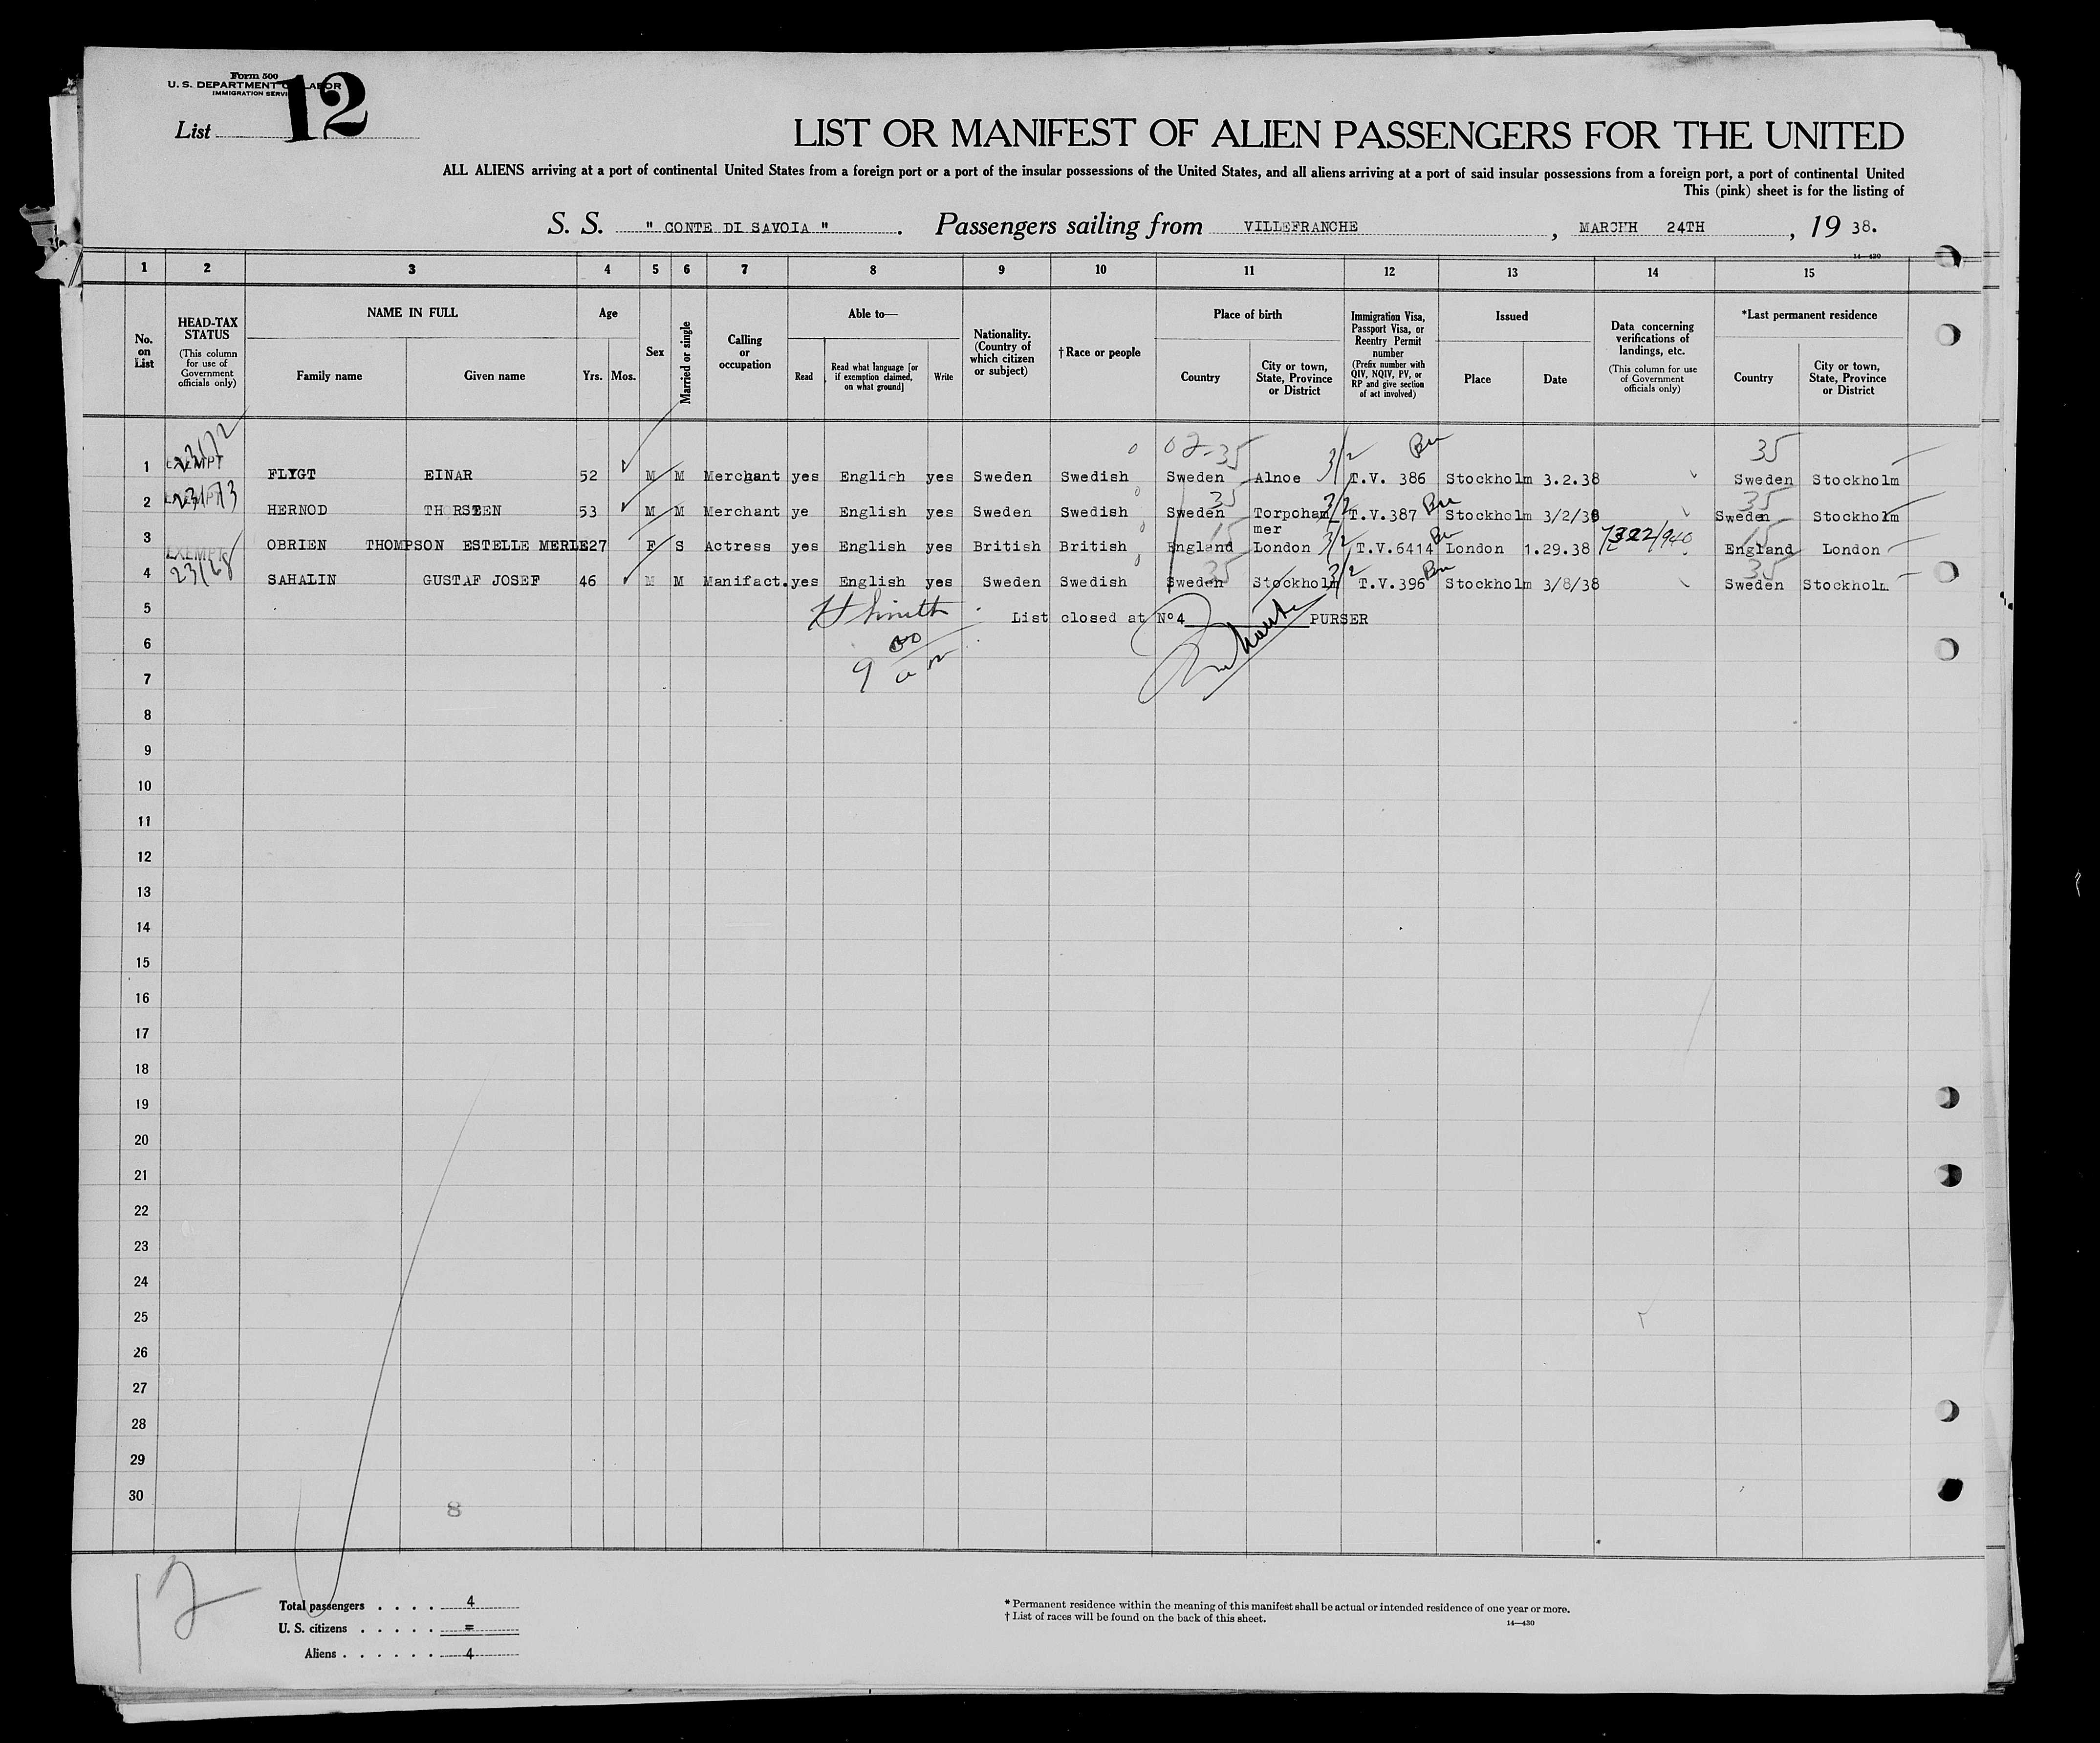 Form 500
U. S. DEPARTMENT OF LABOR
IMMIGRATION SERVICE
List 12
LIST OR MANIFEST OF ALIEN PASSENGERS FOR THE UNITED
ALL ALIENS arriving at a port of continental United States from a foreign port or a port of the insular possessions of the United States, and all aliens arriving at a port of said insular possessions from a foreign port, a port of continental United
This (pink) sheet is for the listing of
S. S. " CONTE DI SAVOIA " . Passengers sailing from VILLEFRANCHE , MARCHH 24TH , 19 38.
14—430
1 2 3 4 5 6 7 8 9 10 11 12 13 14 15
No. on List
HEAD-TAX STATUS (This column for use of Government officials only)
NAME IN FULL Family name Given name
Age Yrs. Mos.
Sex
Married or single
Calling or occupation
Able to— Read Read what language [or if exemption claimed, on what ground] Write
Nationality. (Country of which citizen or subject)
† Race or people
Place of birth Country City or town, State, Province or District
Immigration Visa, Passport Visa, or Reentry Permit number (Prefix number with QIV, NQIV, PV, or RP and give section of act involved)
Issued Place Date
Data concerning verifications of landings, etc. (This column for use of Government officials only)
*Last permanent residence Country City or town, State, Province or District
02-35 3/2 35
1 EXEMPT 23/72 FLYGT EINAR 52 M M Merchant yes English yes Sweden Swedish Sweden Alnoe T.V. 386 Stockholm 3.2.38 Sweden Stockholm
35 3/2 35
2 EXEMPT 23/73 HERNOD THORSTEN 53 M M Merchant ye English yes Sweden Swedish Sweden Torpoham T.V.387 Stockholm 3/2/38 Sweden Stockholm
mer
15 3/2 15
3 OBRIEN THOMPSON ESTELLE MERLE 27 F S Actress yes English yes British British England London T.V.6414 London 1.29.38 7322/940 England London
35 3/2 35
4 EXEMPT 23/68 SAHALIN GUSTAF JOSEF 46 M M Manifact. yes English yes Sweden Swedish Sweden Stockholm T.V.396 Stockholm 3/8/38 Sweden Stockholm
5 H Smith List closed at Nº4 PURSER
6 9 00
am
7
8
9
10
11
12
13
14
15
16
17
18
19
20
21
22
23
24
25
26
27
28
29
30
8
12
Total passengers . . . . 4
U. S. citizens . . . . . =
Aliens . . . . . . 4
* Permanent residence within the meaning of this manifest shall be actual or intended residence of one year or more.
† List of races will be found on the back of this sheet.
14—430